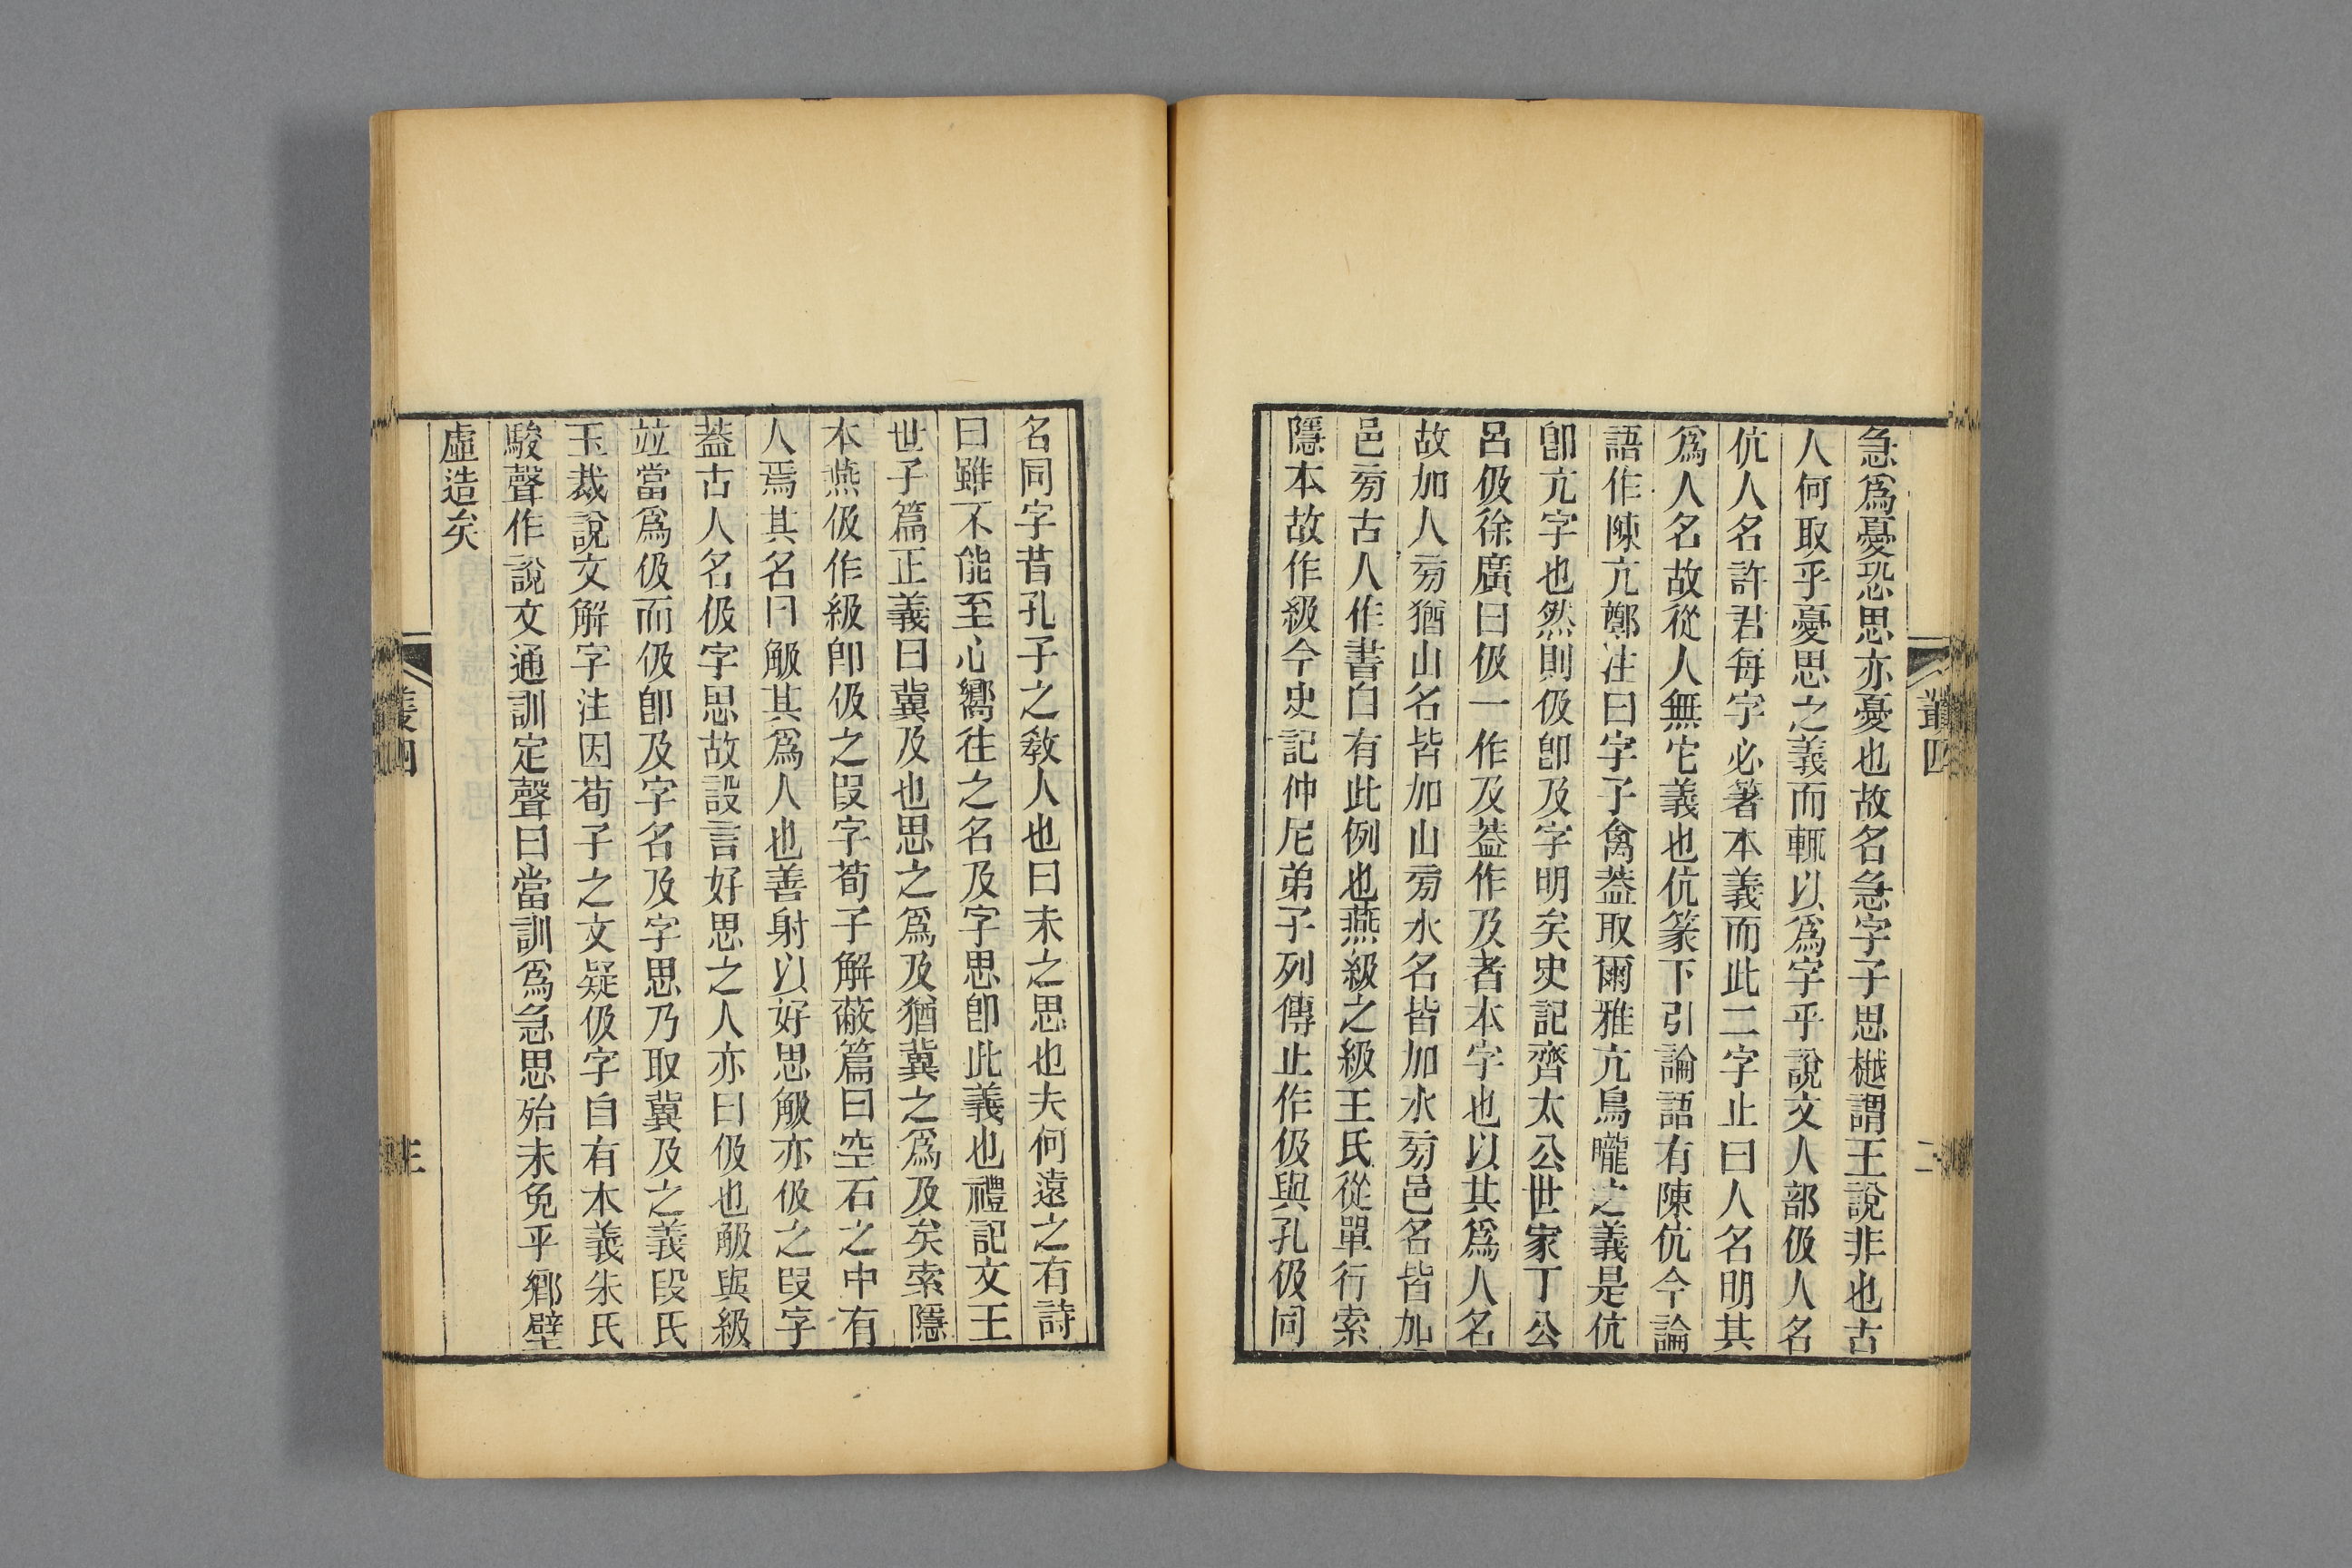 急爲憂恐思亦憂也故名急字子思樾謂王說非也古
人何取乎憂思之義而輒以爲字乎說文人部伋人名
伉人名許君每字必箸本義而此二字止曰人名明其
爲人名故從人無它義也伉篆下引論語有陳伉今論
語作陳亢鄭注曰字子禽葢取爾雅亢鳥嚨之義是伉
卽亢字也然則伋卽及字明矣史記齊太公世家丁公
呂伋徐廣曰伋一作及葢作及者本字也以其爲人名
故加人㫄猶山名皆加山㫄水名皆加水㫄邑名皆加
邑㫄古人作書自有此例也燕級之級王氏從單行索
隱本故作級今史記仲尼弟子列傳止作伋與孔伋同
叢四
名同字昔孔子之敎人也曰未之思也夫何遠之有詩
曰雖不能至心嚮往之名及字思卽此義也禮記文王
世子篇正義曰冀及也思之爲及猶冀之爲及矣索隱
本燕伋作級卽伋之叚字荀子解蔽篇曰空石之中有
人焉其名曰觙其爲人也善射以好思觙亦伋之叚字
葢古人名伋字思故設言好思之人亦曰伋也觙與級
竝當爲伋而伋卽及字名及字思乃取冀及之義段氏
玉裁說文解字注因荀子之文疑伋字自有本義朱氏
駿聲作說文通訓定聲曰當訓爲急思殆未免乎鄉壁
虛造矣